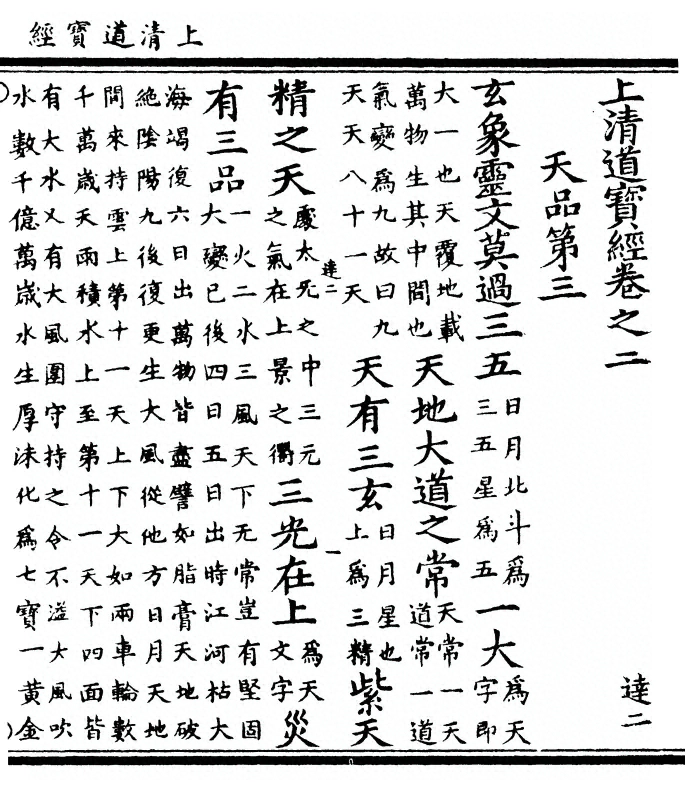 上清道寶經
上清道寶經卷之二 達二
天品第三
玄象靈文莫過三五日月北斗爲三五星爲五一大爲天字即
大一也天覆地載萬物生其中間也天地大道之常天常一天道常一道
氣變爲九故曰九天天八十一天天有三玄日月星也上爲三精紫天
達二 一
精之天處太旡之中三元之氣在上景之衢三光在上爲天文字災
有三品一火二水三風天下无常豈有堅固大變已後四日五日出時江河枯大
海竭復六日出萬物皆盡譬如脂膏天地破
絶陰陽九後復更生大風從他方日月天地
間來持雲上第十一天上下大如兩車輪數
千萬歲天雨積水上至第十一天下四面皆
有大水又有大風圍守持之令不溢大風吹
水數千億萬歲水生厚沫化爲七寶一黃金